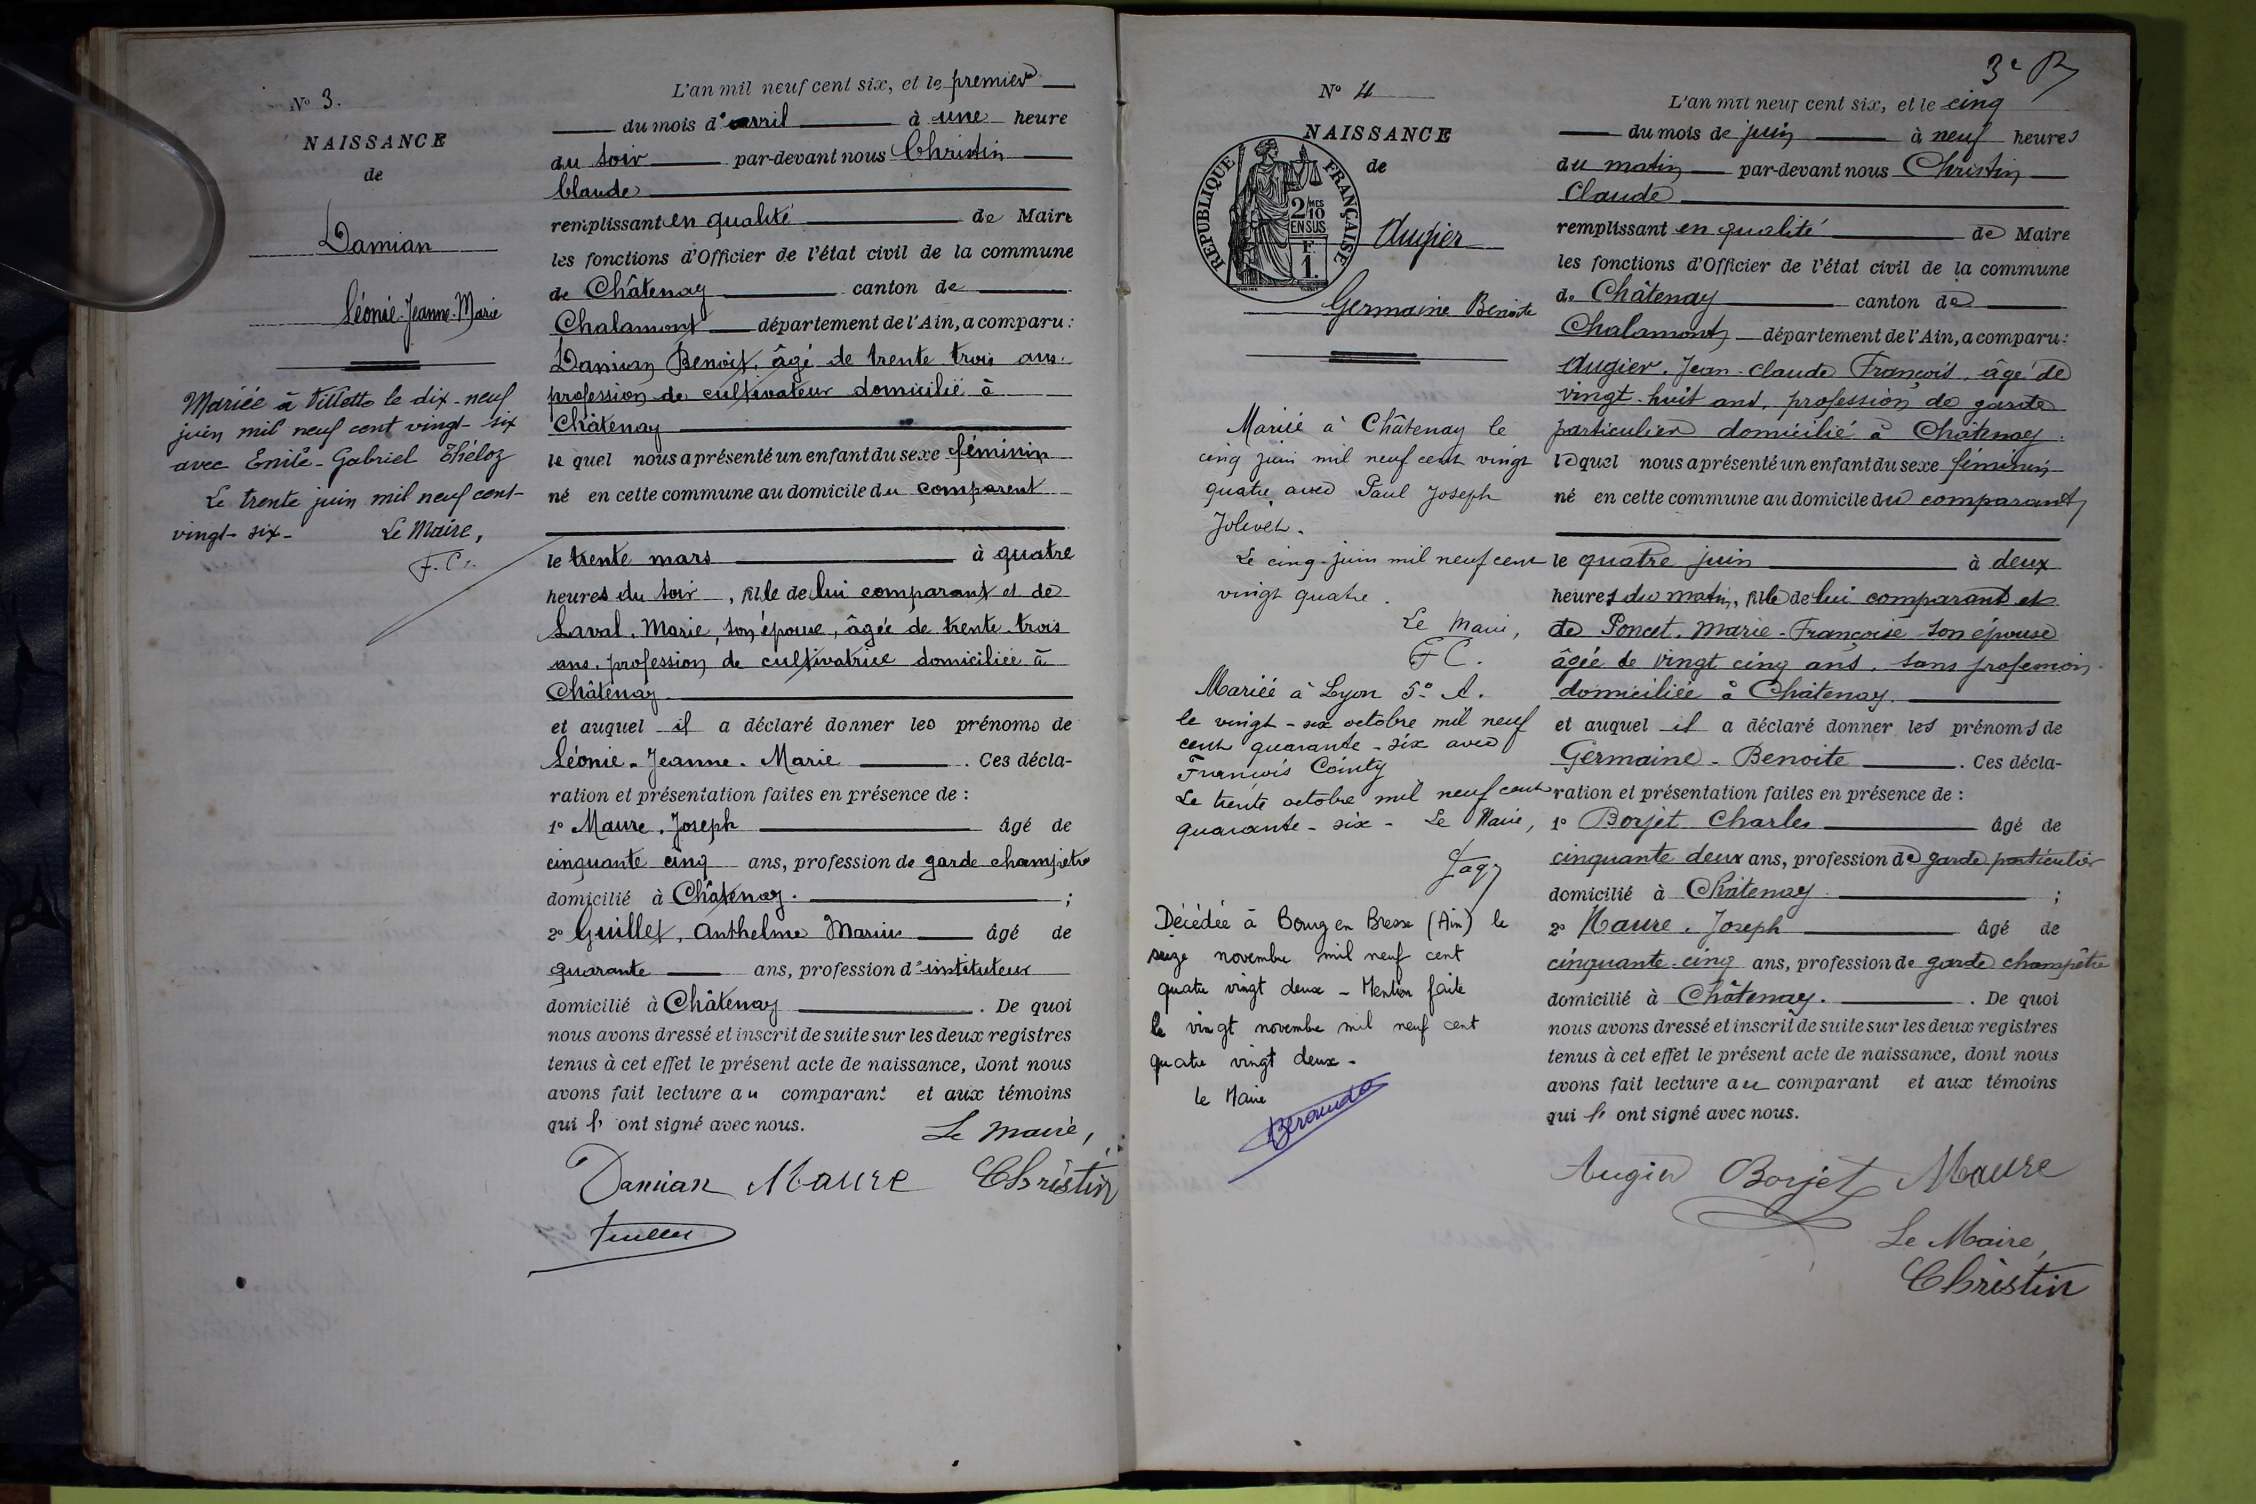 N° 3.
NAISSANCE
de
Damian
Léonie-Jeanne-Marie
Mariée à Villette le dix-neuf
juin mil neuf cent vingt-six
avec Emile-Gabriel Théloz
Le trente juin mil neuf cent
vingt-six- Le Maire,
F. C.
L'an mil neuf cent six, et le premier
du mois d'avril à une heure
du soir par-devant nous Christin
Claude
remplissant en qualité de Maire
les fonctions d'Officier de l'état civil de la commune
de Châtenay canton de
Chalamont département de l'Ain, a comparu:
Damian Benoit, âgé de trente trois ans.
profession de cultivateur domicilié à
Châtenay
le quel nous a présenté un enfant du sexe féminin
né en cette commune au domicile du comparent
le trente mars à quatre
heures du soir, fille de lui comparant et de
Laval, Marie, son épouse, âgée de trente-trois
ans. profession de cultivatrice domiciliée à
Châtenay
et auquel il a déclaré donner les prénoms de
Léonie-Jeanne-Marie. Ces décla-
ration et présentation faites en présence de:
1° Maure, Joseph âgé de
cinquante cinq ans, profession de garde champêtre
domicilié à Châtenay. ;
2° Guillet, Anthelme Marius âgé de
quarante ans, profession d'instituteur
domicilié à Châtenay. De quoi
nous avons dressé et inscrit de suite sur les deux registres
tenus à cet effet le présent acte de naissance, dont nous
avons fait lecture au comparant et aux témoins
qui l' ont signé avec nous.
Le maire,
Damian Maure Christin
3e R
N° 4
NAISSANCE
de
RÉPUBLIQUE FRANÇAISE
2/10 MES
EN SUS
F.
1.
Augier
Germaine Benoite
Mariée à Châtenay le
cinq juin mil neuf cent vingt
quatre avec Paul Joseph
Jolivet.
Le cinq-juin mil neuf cent
vingt quatre.
Le Maire,
F C.
Mariée à Lyon 5° A.
le vingt-six octobre mil neuf
cent quarante-six avec
François Cointy
Le trente octobre mil neuf cent
quarante-six- Le Maire,
Décédée à Bourg en Bresse (Ain) le
seize novembre mil neuf cent
quatre vingt deux - Mention faite
le vingt novembre mil neuf cent
quatre vingt deux-
le Maire
L'an mil neuf cent six, et le cinq
du mois de juin à neuf heures
du matin par-devant nous Christin
Claude
remplissant en qualité de Maire
les fonctions d'Officier de l'état civil de la commune
de Châtenay canton de
Chalamont département de l'Ain, a comparu:
Augier. Jean-Claude François. âgé de
vingt-huit ans, profession de garde
particulier domicilié à Châtenay.
le quel nous a présenté un enfant du sexe féminin
né en cette commune au domicile du comparant
le quatre juin à deux
heures du matin, fille de lui comparant et
de Poncet. Marie-Françoise son épouse
âgée de vingt cinq ans. sans profession
domiciliée à Châtenay.
et auquel il a déclaré donner les prénoms de
Germaine-Benoite. Ces décla-
ration et présentation faites en présence de:
1° Borjet Charles âgé de
cinquante deux ans, profession de garde particulier
domicilié à Châtenay ;
2° Maure. Joseph âgé de
cinquante-cinq ans, profession de garde champêtre
domicilié à Châtenay. . De quoi
nous avons dressé et inscrit de suite sur les deux registres
tenus à cet effet le présent acte de naissance, dont nous
avons fait lecture au comparant et aux témoins
qui l' ont signé avec nous.
Augier Borjet Maure
Le Maire,
Christin